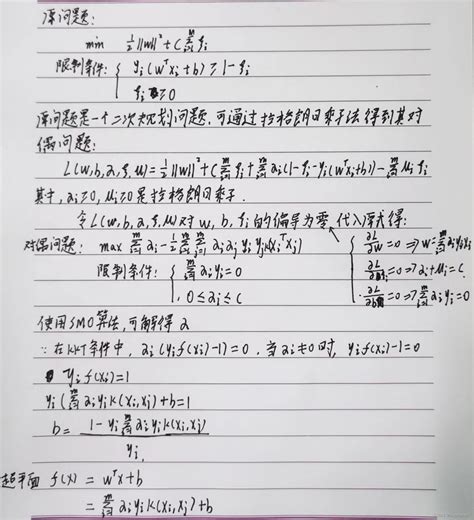 原问题:
min ½||w||² + C Σᵢ₌₁ᵐ ξᵢ
限制条件: { yᵢ(wᵀxᵢ+b) ≥ 1-ξᵢ
ξᵢ ≥ 0
原问题是一个二次规划问题,可通过拉格朗日乘子法得到其对
偶问题:
L(w,b,α,ξ,μ) = ½||w||² + C Σᵢ₌₁ᵐ ξᵢ + Σᵢ₌₁ᵐ αᵢ(1-ξᵢ-yᵢ(wᵀxᵢ+b)) - Σᵢ₌₁ᵐ μᵢξᵢ
其中, αᵢ≥0, μᵢ≥0 是拉格朗日乘子.
令L(w,b,α,ξ,μ)对w,b,ξᵢ的偏导为零,代入原式得:
对偶问题: max Σᵢ₌₁ᵐ αᵢ - ½ Σᵢ₌₁ᵐ Σⱼ₌₁ᵐ αᵢαⱼyᵢyⱼK(xᵢᵀxⱼ) { ∂L/∂w=0 => w=Σᵢ₌₁ᵐ αᵢyᵢxᵢ
限制条件: { Σᵢ₌₁ᵐ αᵢyᵢ=0 ∂L/∂ξᵢ=0 => αᵢ+μᵢ=C
0≤αᵢ≤C ∂L/∂b=0 => Σᵢ₌₁ᵐ αᵢyᵢ=0
使用SMO算法,可解得α
∵在KKT条件中, αᵢ(yᵢf(xᵢ)-1)=0, 当αᵢ≠0时, yᵢf(xᵢ)-1=0
yᵢf(xᵢ)=1
yᵢ(Σᵢ₌₁ᵐ αᵢyᵢK(xᵢ,xⱼ)+b=1
b= (1-yᵢ Σᵢ₌₁ᵐ αᵢyᵢK(xᵢ,xⱼ)) / yᵢ
超平面 f(x) = wᵀx+b
= Σᵢ₌₁ᵐ αᵢyᵢK(xᵢ,xⱼ)+b